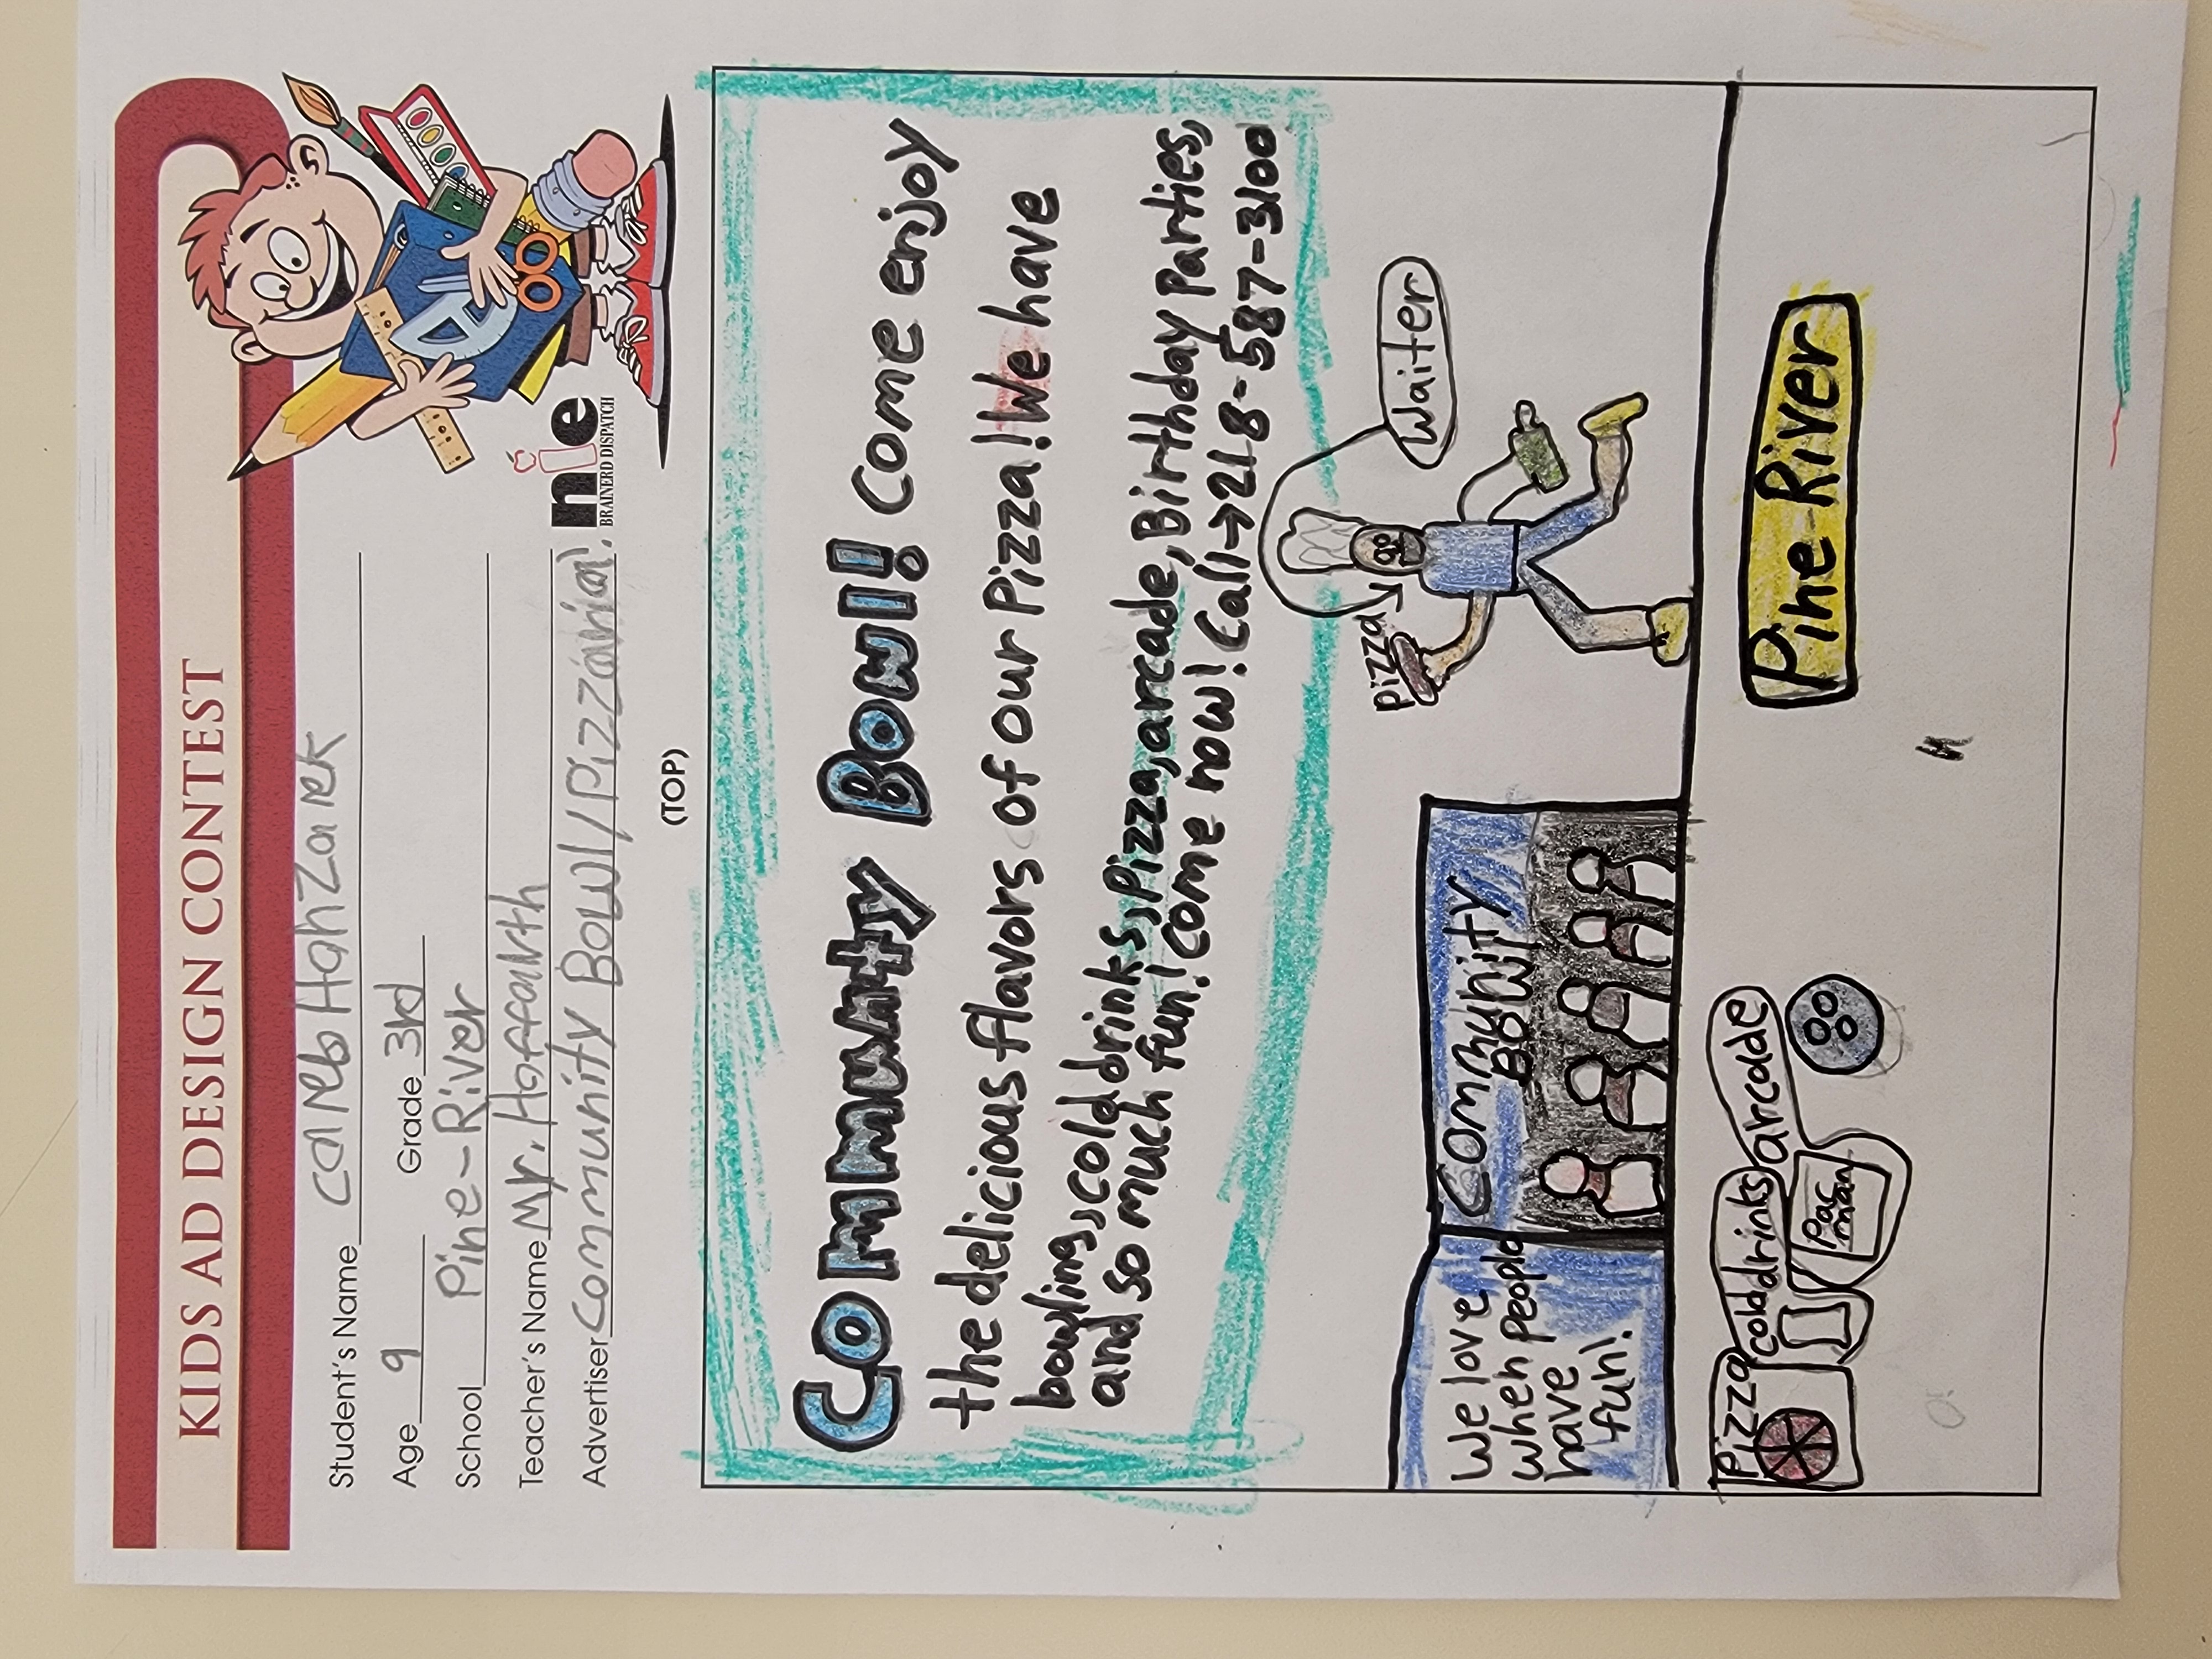 KIDS AD DESIGN CONTEST
Student's Name Caleb Hanzarek
Age 9 Grade 3rd
School Pine-River
Teacher's Name Mr.
Advertiser Community Bowl/Pizzaria!.
nie
BRAINERD DISPATCH
(TOP)
Community Bowl! Come enjoy
the delicious flavors of our Pizza! We have
bowling, cold drinks, Pizza, arcade, Birthday Parties,
and so much fun! Come now! Call→218-587-3100
Waiter
pizza
We love
when people
have
fun!
Community
Bowl
Pizza
cold drinks
arcade
Pac
man
Pine-River